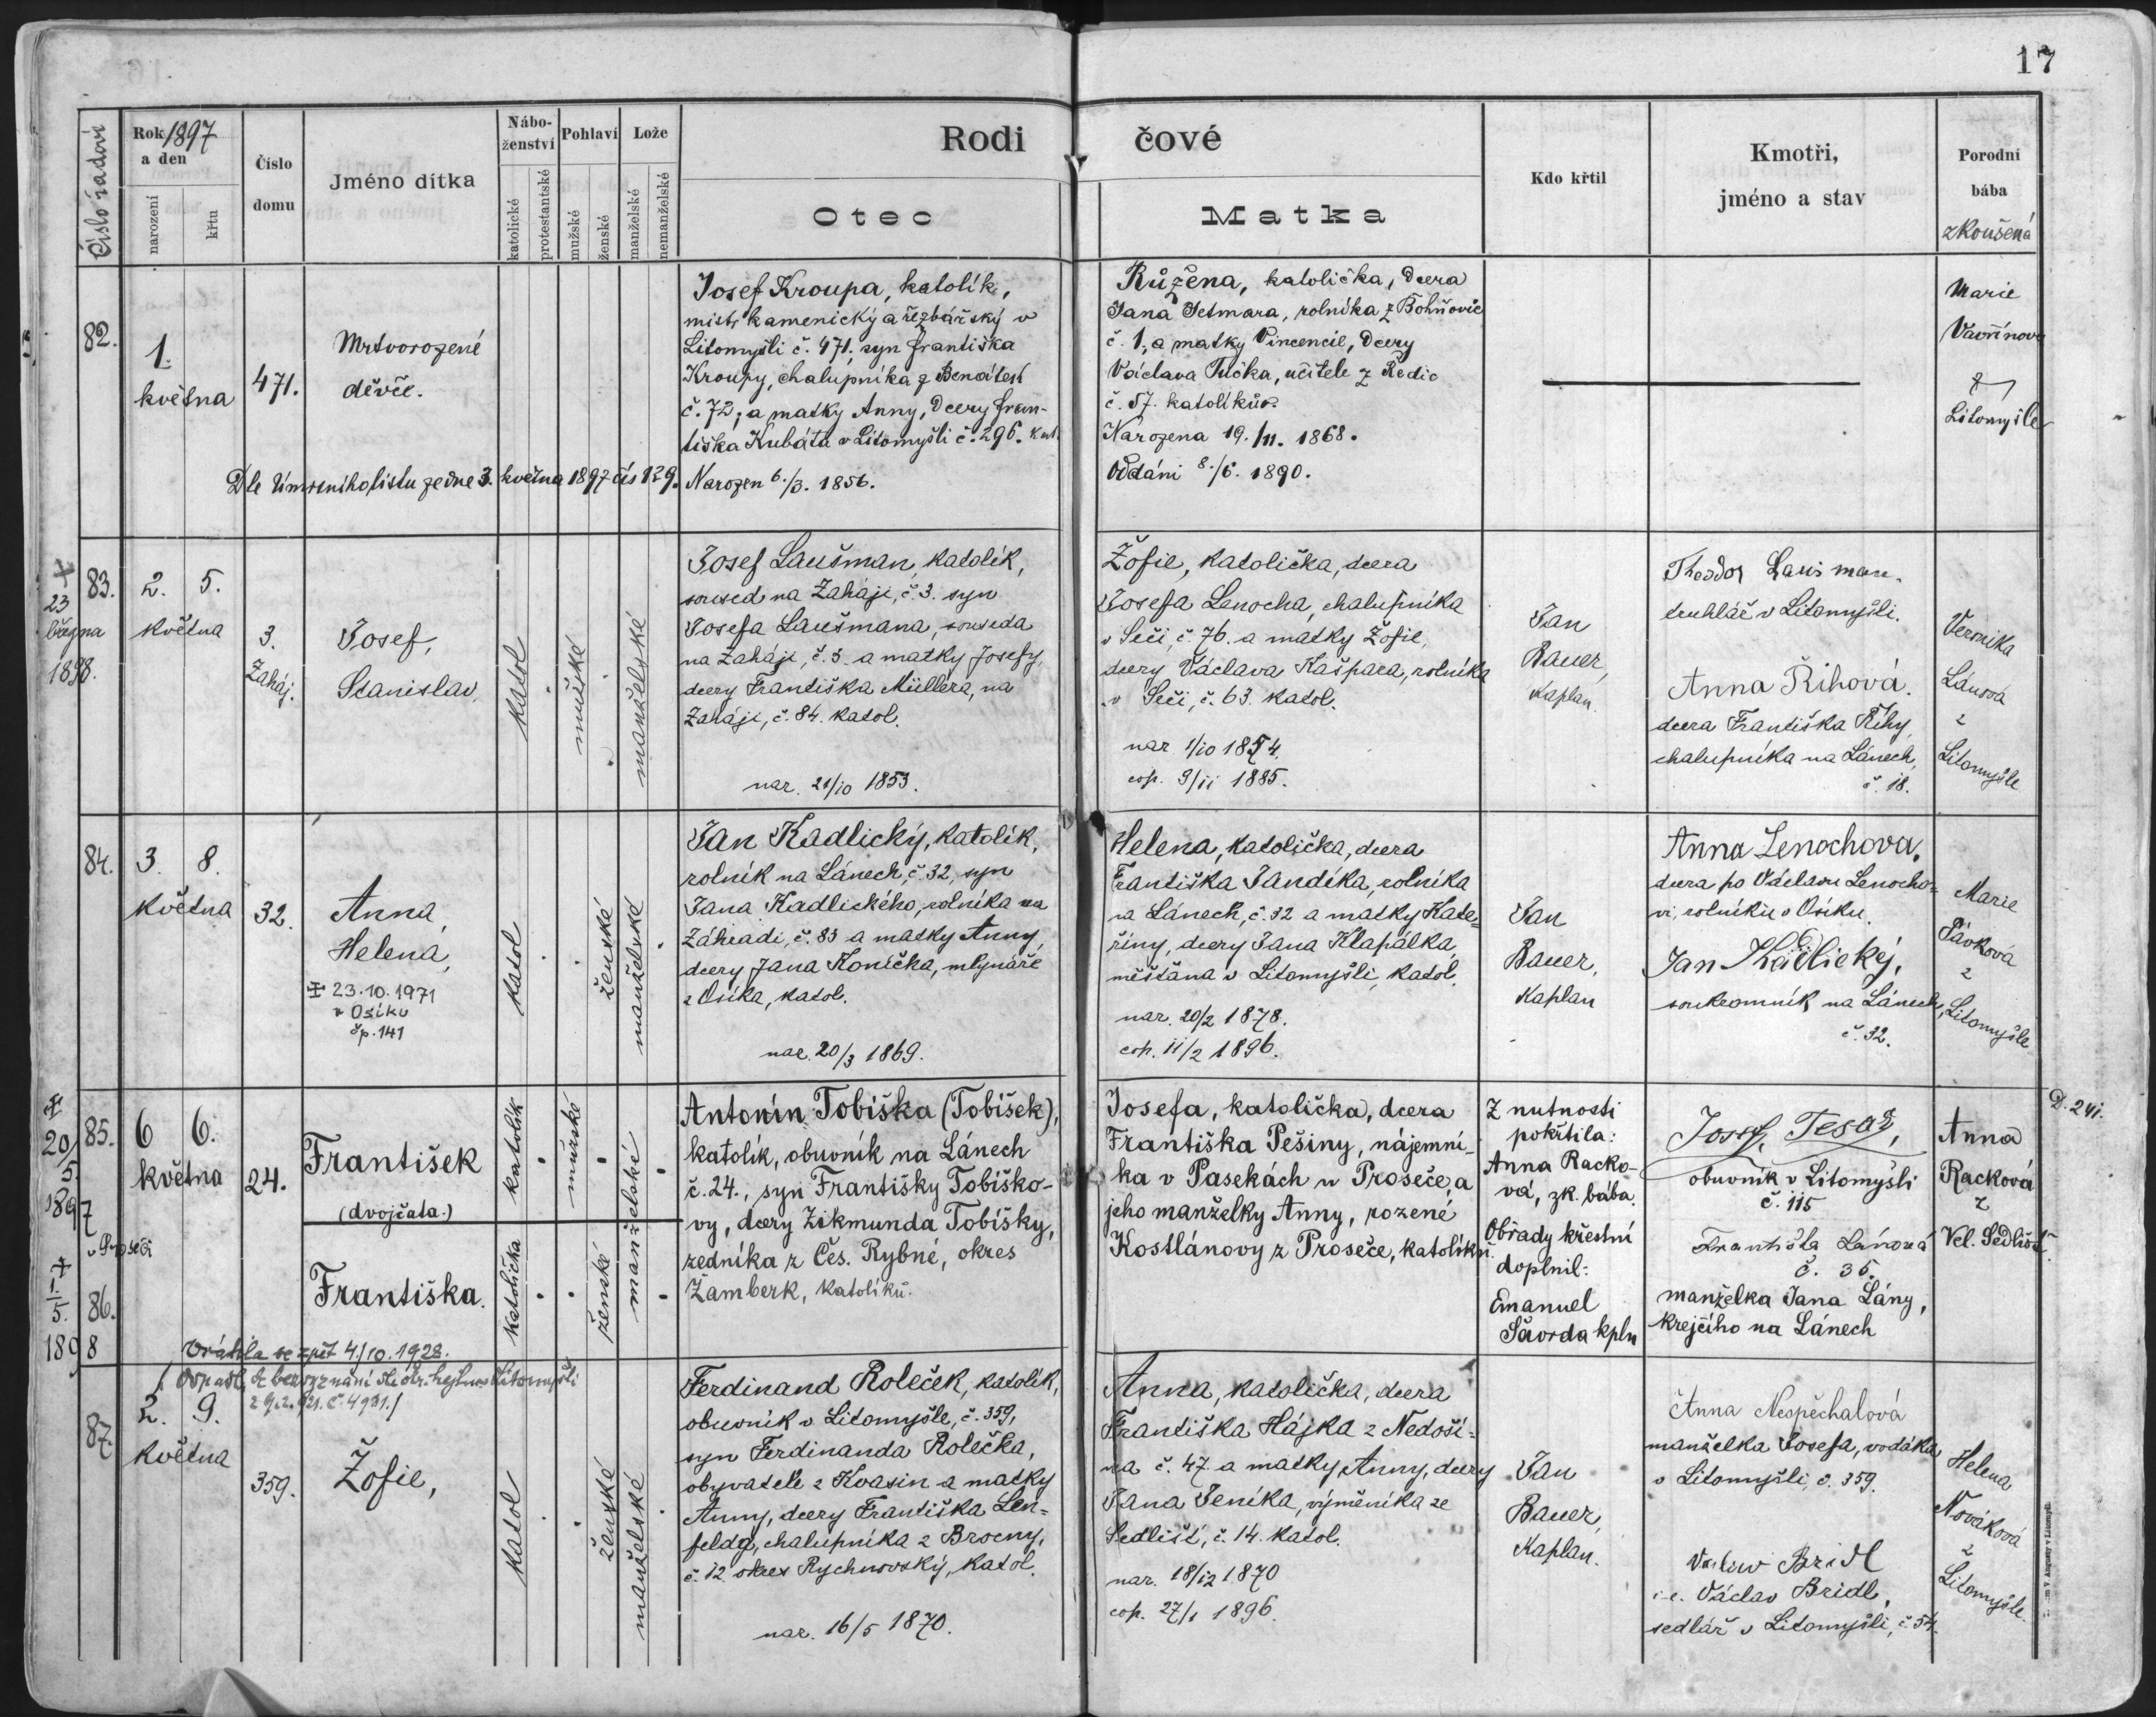 17
Číslo řadové
Rok 1897
a den
narození
křtu
Číslo
domu
Jméno dítka
Nábo-
ženství
katolické
protestantské
Pohlaví
mužské
ženské
Lože
manželské
nemanželské
Rodičové
Otec
Matka
Kdo křtil
Kmotři,
jméno a stav
Porodní
bába
zkoušená
82.
1.
května
471.
Mrtvorozené
děvče.
Dle Úmrtního listu ze dne 3. května 1897 čís 129.
Josef Kroupa, katolík,
mistr kamenický a řezbářský v
Litomyšli č. 471; syn Františka
Kroupy, chalupníka z Benátek
č. 72; a matky Anny, dcery Fran-
tiška Kubáta v Litomyšli č. 296. kat.
Narozen 6./3. 1856.
Růžena, katolička, dcera
Jana Jetmara, rolníka z Bohňovic
č. 1, a matky Vincencie, dcery
Václava Tučka, učitele z Ředic
č. 57. katolíkův.
Narozena 19./11. 1868.
Oddáni 8./6. 1890.
Marie
Vavřínova
z
Litomyšle
+
23
března
1898.
83.
2. 5.
května
3.
Zaháj.
Josef,
Stanislav,
katol
mužské
manželské
Josef Laušman, katolík,
soused na Zaháji, č. 3. syn
Josefa Laušmana, souseda
na Zaháji, č. 3. a matky Josefy,
dcery Františka Müllera, na
Zaháji, č. 84. katol.
nar. 21/10 1853.
Žofie, katolička, dcera
Josefa Lenocha, chalupníka
v Seči, č. 76. a matky Žofie,
dcery Václava Kašpara, rolníka
v Seči, č. 63. katol.
nar. 1/10 1854.
cop. 9/11 1885.
Jan
Bauer,
kaplan.
Theodor Lausman.
truhlář v Litomyšli.
Anna Řihová.
dcera Františka Řihy,
chalupníka na Lánech,
č. 18.
Veronika
Lánová
z
Litomyšle
84.
3. 8.
května
32.
Anna,
Helena,
+ 23.10.1971
v Osíku
čp. 141
katol
ženské
manželské
Jan Kadlický, katolík,
rolník na Lánech, č. 32, syn
Jana Kadlického, rolníka na
Záhradi, č. 83 a matky Anny,
dcery Jana Koníčka, mlynáře
z Osíka, katol.
nar. 20/3 1869.
Helena, katolička, dcera
Františka Jandíka, rolníka
na Lánech, č. 32 a matky Kate-
řiny, dcery Jana Klapálka,
měšťana v Litomyšli, katol.
nar. 20/2 1878.
cop. 11/2 1896.
Jan
Bauer,
kaplan
Anna Lenochova,
dcera po Václavu Lenocho-
vi, rolníku v Osíku.
Jan Kadlický,
soukromník na Lánech,
č. 32.
Marie
Pávková
z
Litomyšle
+
20/
5.
1897
v Proseči
85.
6 6.
května
24.
František
(dvojčata.)
katolík
mužské
manželské
Antonín Tobiška (Tobišek),
katolík, obuvník na Lánech
č. 24., syn Františky Tobiško-
vy, dcery Zikmunda Tobišky,
zedníka z Čes. Rybné, okres
Žamberk, katolíků.
Josefa, katolička, dcera
Františka Pešiny, nájemní-
ka v Pasekách u Proseče, a
jeho manželky Anny, rozené
Kostlánovy z Proseče, katolíků.
Z nutnosti
pokřtila:
Anna Racko-
vá, zk. bába.
Obřady křestní
doplnil:
Emanuel
Šavrda kpln
Josef Tesař,
obuvník v Litomyšli
č. 115
Františka Lánová
č. 35.
manželka Jana Lány,
krejčího na Lánech
Anna
Racková
z
Vel. Sedlišť.
D. 241.
+
1.
5.
1898
86.
Františka.
katolička
ženské
Vrátila se zpět 4./10. 1928.
87.
2. 9.
května
359.
Žofie,
katol
ženské
manželské
Ferdinand Roleček, katolík,
obuvník v Litomyšle, č. 359,
syn Ferdinanda Rolečka,
obyvatele z Kvasin a matky
Anny, dcery Františka Len-
felda, chalupníka z Brocny,
č. 12 okres Rychnovský, katol.
nar. 16/5 1870.
Anna, katolička, dcera
Františka Hájka z Nedoší-
na č. 47 a matky Anny, dcery
Jana Jeníka, výměníka ze
Sedlišť, č. 14. katol.
nar. 18/12 1870
cop. 27/1 1896.
Jan
Bauer,
kaplan.
Anna Nespěchalová
manželka Josefa, vodáka
v Litomyšli, č. 359.
Bridl
i. e. Václav Bridl,
sedlář v Litomyšli, č. 54.
Helena
Nováková
z
Litomyšle.